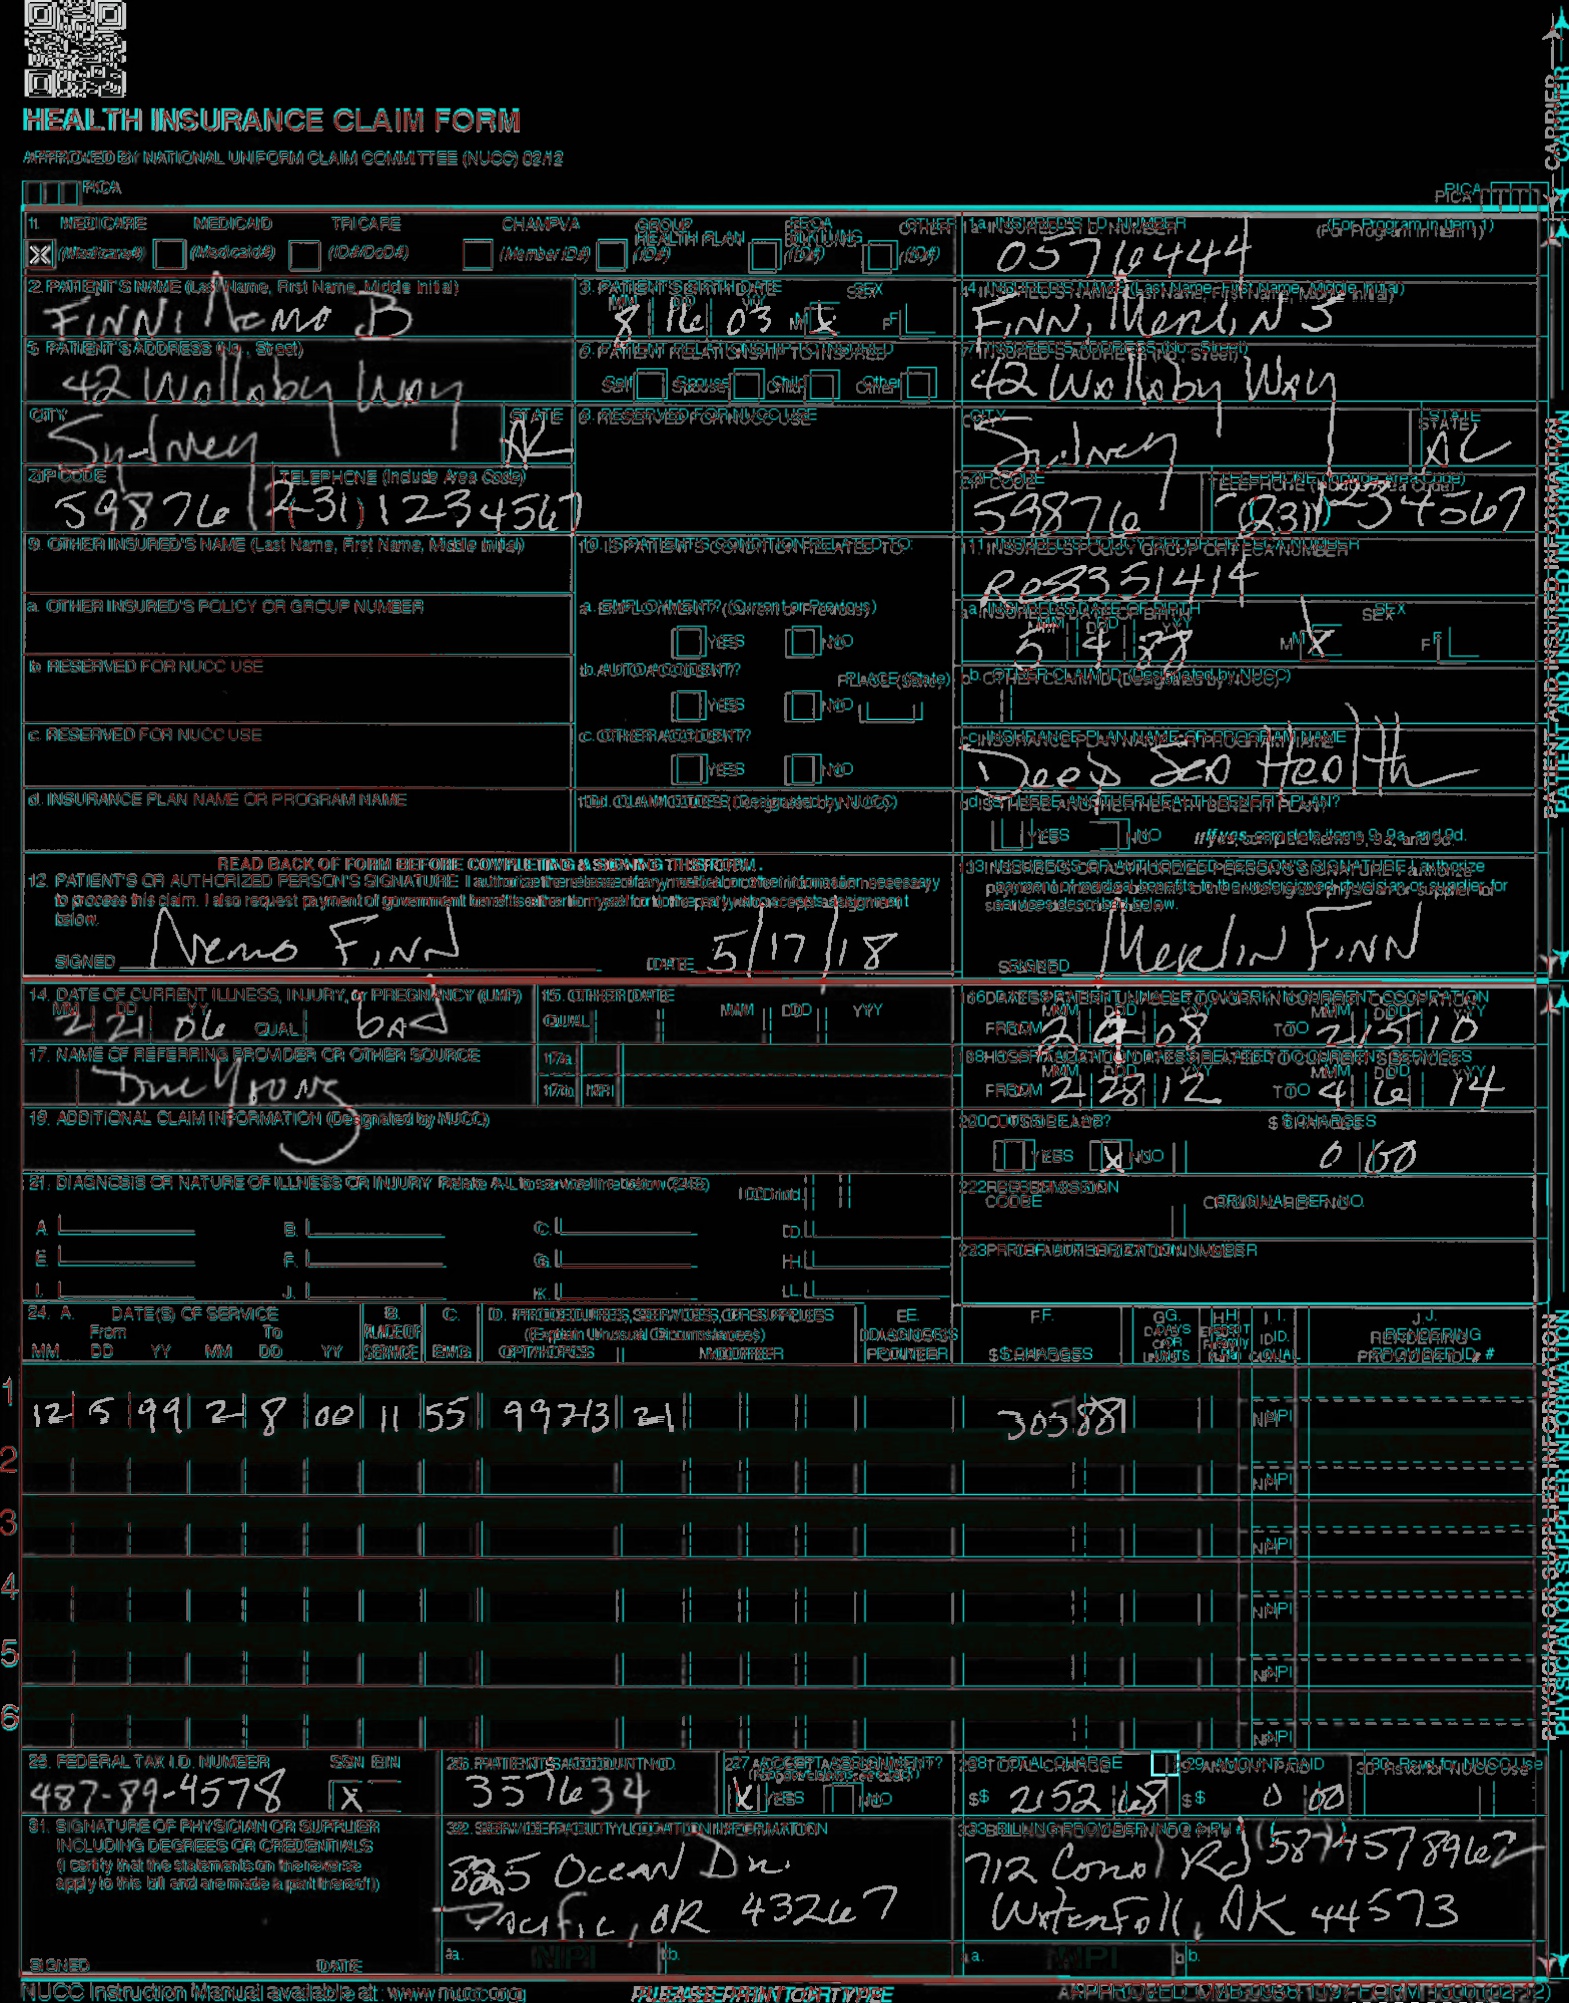 HEALTH INSURANCE CLAIM FORM
APPROVED BY NATIONAL UNIFORM CLAIM COMMITTEE (NUCC) 02/12
PICA
PICA
CARRIER
1. MEDICARE MEDICAID TRICARE CHAMPVA GROUP HEALTH PLAN FECA BLK LUNG OTHER
X (Medicare#) (Medicaid#) (ID#/DoD#) (Member ID#) (ID#) (ID#) (ID#)
1a. INSURED'S I.D. NUMBER (For Program in Item 1)
05716444
2. PATIENT'S NAME (Last Name, First Name, Middle Initial)
FINN, Nemo B
3. PATIENT'S BIRTH DATE SEX
MM DD YY
8 16 03 M X F
4. INSURED'S NAME (Last Name, First Name, Middle Initial)
FINN, Merlin S
5. PATIENT'S ADDRESS (No., Street)
42 Wallaby Way
6. PATIENT RELATIONSHIP TO INSURED
Self Spouse Child Other
7. INSURED'S ADDRESS (No., Street)
42 Wallaby Way
CITY STATE
Sydney
8. RESERVED FOR NUCC USE
CITY STATE
Sydney
ZIP CODE TELEPHONE (Include Area Code)
59876 (231) 1234567
ZIP CODE TELEPHONE (Include Area Code)
59876 (231) 1234567
9. OTHER INSURED'S NAME (Last Name, First Name, Middle Initial)
10. IS PATIENT'S CONDITION RELATED TO:
11. INSURED'S POLICY GROUP OR FECA NUMBER
a. OTHER INSURED'S POLICY OR GROUP NUMBER
a. EMPLOYMENT? (Current or Previous)
YES NO
a. INSURED'S DATE OF BIRTH SEX
MM DD YY
5 4 88 M X F
b. RESERVED FOR NUCC USE
b. AUTO ACCIDENT? PLACE (State)
YES NO
b. OTHER CLAIM ID (Designated by NUCC)
c. RESERVED FOR NUCC USE
c. OTHER ACCIDENT?
YES NO
c. INSURANCE PLAN NAME OR PROGRAM NAME
Deep Sea Health
d. INSURANCE PLAN NAME OR PROGRAM NAME
10d. CLAIM CODES (Designated by NUCC)
d. IS THERE ANOTHER HEALTH BENEFIT PLAN?
YES NO If yes, complete items 9, 9a, and 9d.
READ BACK OF FORM BEFORE COMPLETING & SIGNING THIS FORM.
12. PATIENT'S OR AUTHORIZED PERSON'S SIGNATURE I authorize the release of any medical or other information necessary
to process this claim. I also request payment of government benefits either to myself or to the party who accepts assignment
below.
SIGNED Nemo FINN DATE 5/17/18
13. INSURED'S OR AUTHORIZED PERSON'S SIGNATURE I authorize
payment of medical benefits to the undersigned physician or supplier for
services described below.
SIGNED Merlin FINN
PATIENT AND INSURED INFORMATION
14. DATE OF CURRENT ILLNESS, INJURY, or PREGNANCY (LMP)
MM DD YY
2 21 06 QUAL. bad
15. OTHER DATE
QUAL. MM DD YY
16. DATES PATIENT UNABLE TO WORK IN CURRENT OCCUPATION
MM DD YY MM DD YY
FROM 2 9 08 TO 2 15 10
17. NAME OF REFERRING PROVIDER OR OTHER SOURCE
Young
17a.
17b. NPI
18. HOSPITALIZATION DATES RELATED TO CURRENT SERVICES
MM DD YY MM DD YY
FROM 2 28 12 TO 4 6 14
19. ADDITIONAL CLAIM INFORMATION (Designated by NUCC)
20. OUTSIDE LAB? $ CHARGES
YES X NO 0 00
21. DIAGNOSIS OR NATURE OF ILLNESS OR INJURY Relate A-L to service line below (24E) ICD Ind.
A. B. C. D.
E. F. G. H.
I. J. K. L.
22. RESUBMISSION CODE ORIGINAL REF. NO.
23. PRIOR AUTHORIZATION NUMBER
24. A. DATE(S) OF SERVICE B. C. D. PROCEDURES, SERVICES, OR SUPPLIES E. F. G. H. I. J.
From To PLACE OF (Explain Unusual Circumstances) DIAGNOSIS DAYS OR ID. RENDERING
MM DD YY MM DD YY SERVICE EMG CPT/HCPCS MODIFIER POINTER $ CHARGES UNITS QUAL. PROVIDER ID. #
1 12 5 99 2 8 00 11 55 99213 21 305 88 NPI
2 NPI
3 NPI
4 NPI
5 NPI
6 NPI
25. FEDERAL TAX I.D. NUMBER SSN EIN
487-89-4578 X
26. PATIENT'S ACCOUNT NO.
357634
27. ACCEPT ASSIGNMENT?
X YES NO
28. TOTAL CHARGE
$ 2152 68
29. AMOUNT PAID
$ 0 00
30. Rsvd for NUCC Use
31. SIGNATURE OF PHYSICIAN OR SUPPLIER
INCLUDING DEGREES OR CREDENTIALS
(I certify that the statements on the reverse
apply to this bill and are made a part thereof.)
SIGNED DATE
32. SERVICE FACILITY LOCATION INFORMATION
825 Ocean Dr.
Pacific, OR 43267
a. NPI b.
33. BILLING PROVIDER INFO & PH # (587)4578962
712 Coral Rd
Waterfall, AK 44573
a. NPI b.
PHYSICIAN OR SUPPLIER INFORMATION
NUCC Instruction Manual available at: www.nucc.org
PLEASE PRINT OR TYPE